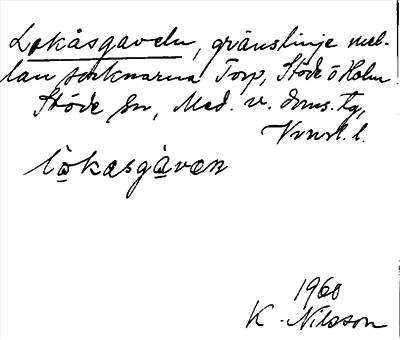 Lokåsgaveln, gränslinje mel-
lan socknarna Torp, Stöde o Holm
Stöde sn, Med. v. doms. tg,
Vrnl. l.
lòkasgàvæn
1960
K. Nilsson